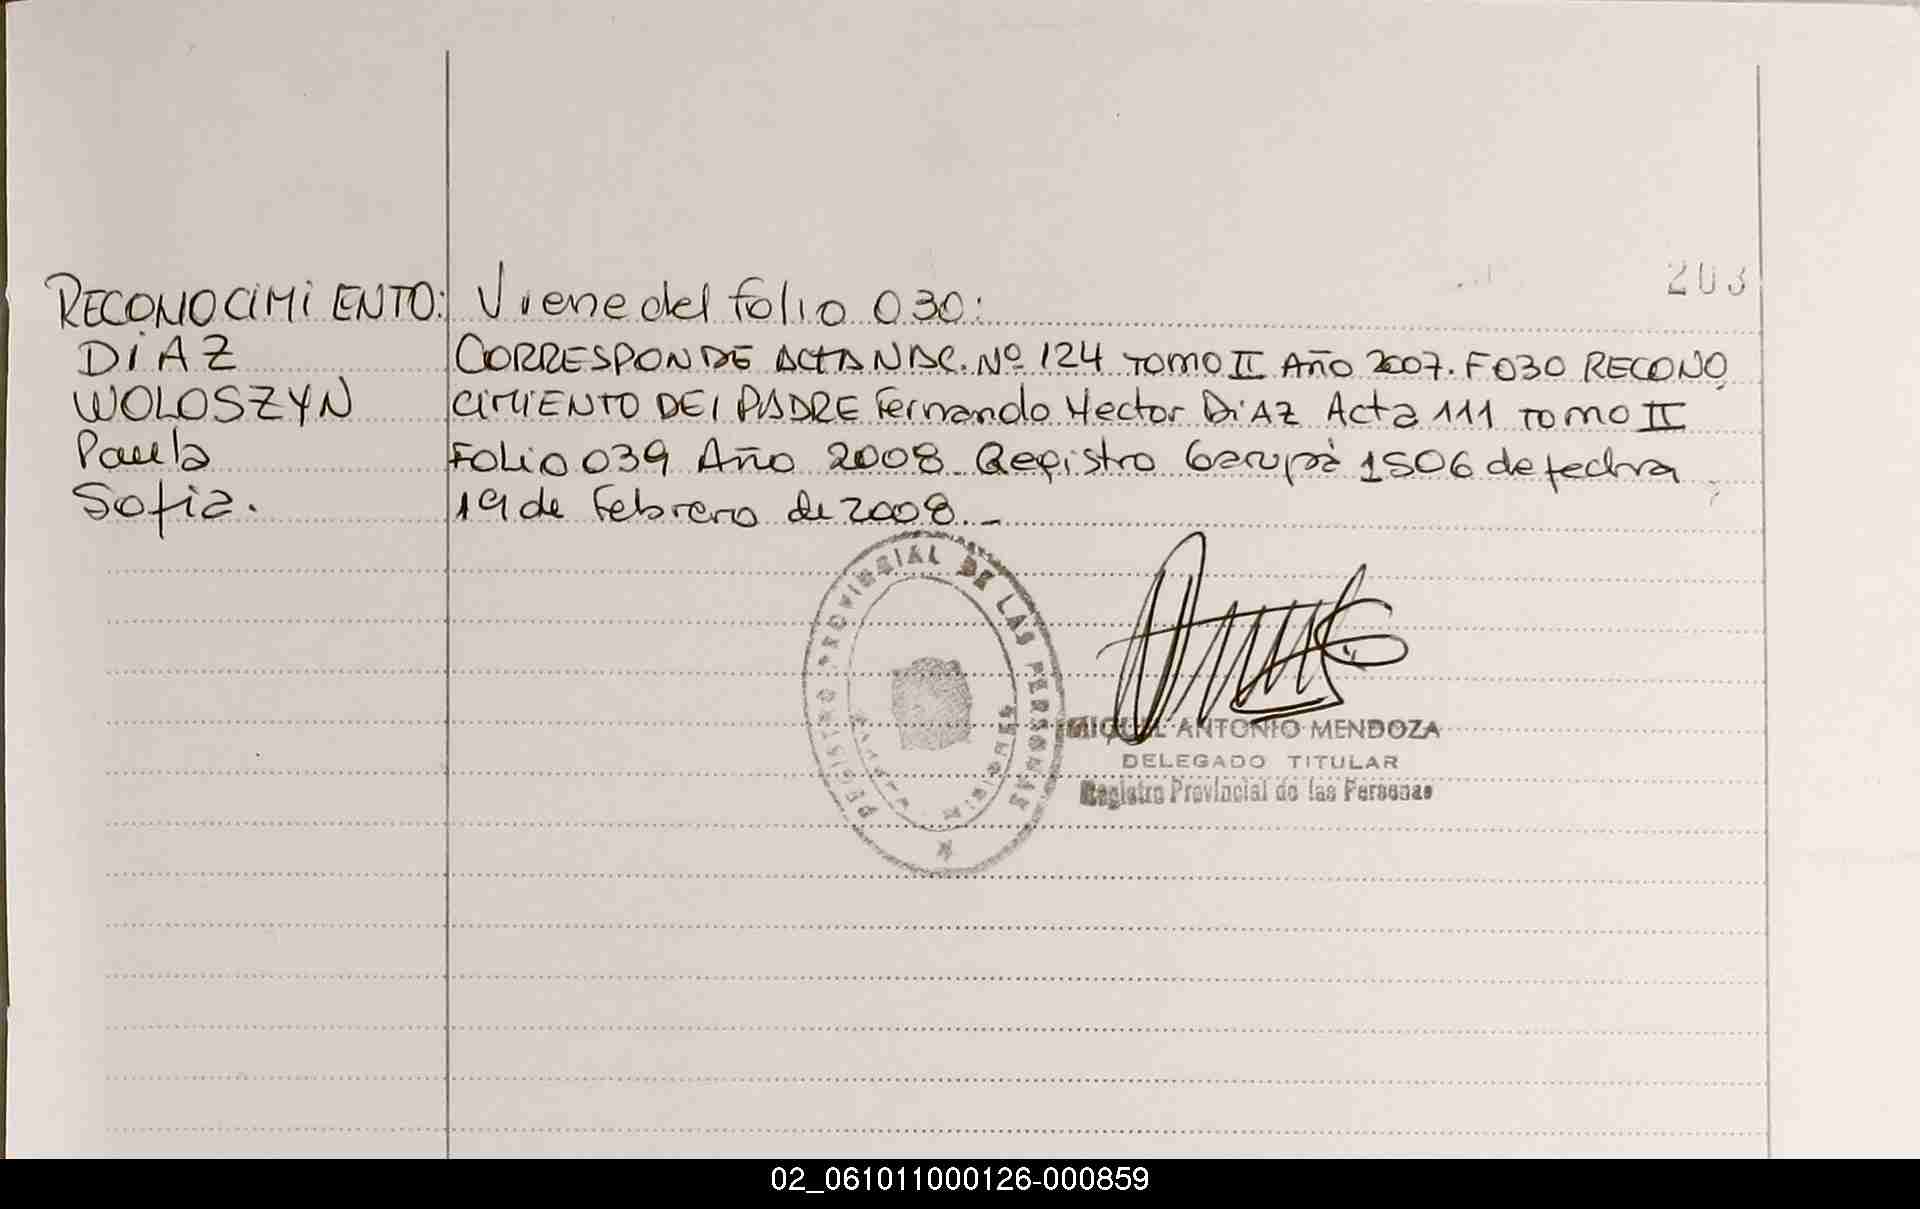 203
RECONOCIMIENTO: Viene del folio 030:
DIAZ CORRESPONDE ACTA NAC. Nº 124 TOMO II Año 2007. F030 RECONO
WOLOSZYN CIMIENTO DEl PADRE Fernando Hector DIAZ Acta 111 TOMO II
Paula FOLIO 039 Año 2008 Registro Garupà 1506 de fecha
Sofia. 19 de Febrero de 2008._
REGISTRO PROVINCIAL DE LAS PERSONAS
MIGUEL ANTONIO MENDOZA
DELEGADO TITULAR
Registro Provincial de las Personas
02_061011000126-000859